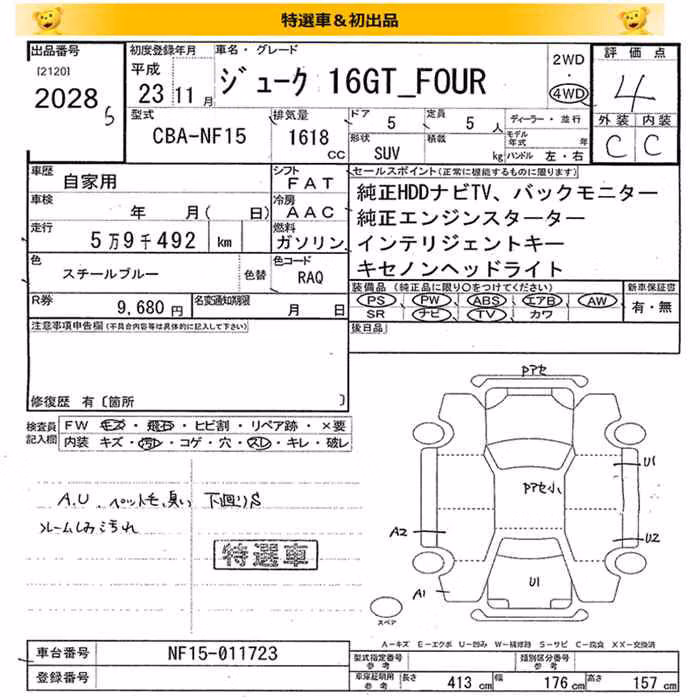 特選車&初出品
出品番号
[2120]
2028
5
初度登録年月
平成
23 11月
車名・グレード
ジューク 16GT_FOUR
2WD
・
4WD
評価点
4
外装 内装
C C
型式
CBA-NF15
排気量
1618
CC
ドア
5
定員
5 人
形状
SUV
積載
kg
ディーラー・並行
モデル年式 年
ハンドル 左・右
車歴
自家用
シフト
FAT
車検
年 月( 日)
冷房
AAC
走行
5万9千492 km
燃料
ガソリン
色
スチールブルー
色替
色コード
RAQ
R券
9,680 円
名変通知期限
月 日
セールスポイント(正常に機能するものに限ります)
純正HDDナビTV、バックモニター
純正エンジンスターター
インテリジェントキー
キセノンヘッドライト
装備品 (純正品に限り○をつけてください)
新車保証書
PS PW ABS エアB AW
有・無
SR ナビ TV カワ
後日品
注意事項申告欄(不具合内容等は具体的に記入して下さい)
修復歴 有〔箇所 〕
検査員
記入欄
FW キズ・飛石・ヒビ割・リペア跡・×要
内装 キズ・汚れ・コゲ・穴・スレ・キレ・破レ
A.U.
下廻りS
特選車
Pアセ
Pアセ小
U1
U2
A2
A1
U1
スペア
A-キズ E-エクボ U-凹み W-補修跡 S-サビ C-腐食 XX-交換済
車台番号
NF15-011723
登録番号
型式指定番号
参考
類別区分番号
参考
車庫証明用
参考
長さ 413 cm
幅 176 cm
高さ 157 cm